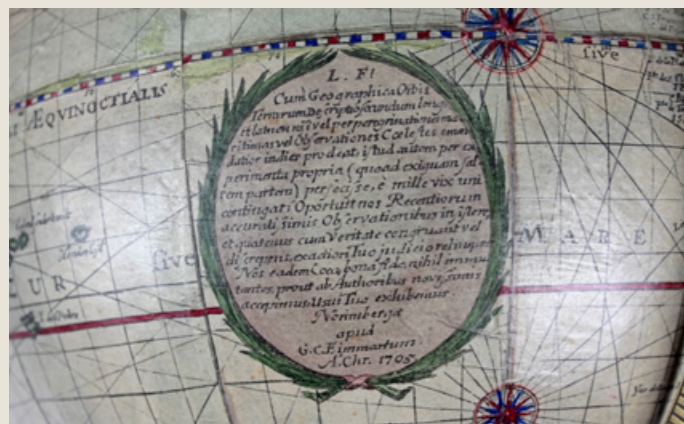 five
ÆQVINOCTIALIS
L. F!
Cum Geographica Orbis
Terrarum Descriptio secundum
et vel per peregrinationes
ritimas vel Observationes Cœlestes emen
datior indies prodeat, istud autem per ex
perimenta propria (quoad exiguam sal
tem partem) perfecisse, e mille vix uni
contingat: Oportuit nos Recentiorum
accuratissimis Observationibus insistere,
et quatenus cum Veritate congruant vel
discrepent, exactiori Tuo judicio relinquere.
Nos eadem bona fide, nihil immu
tantes, prout ab Authoribus novissimis
accepimus, Usui Tuo exhibemus.
Norimbergæ
apud
G.C. Eimmartum.
A. Chr. 1705
five
MARE
UR